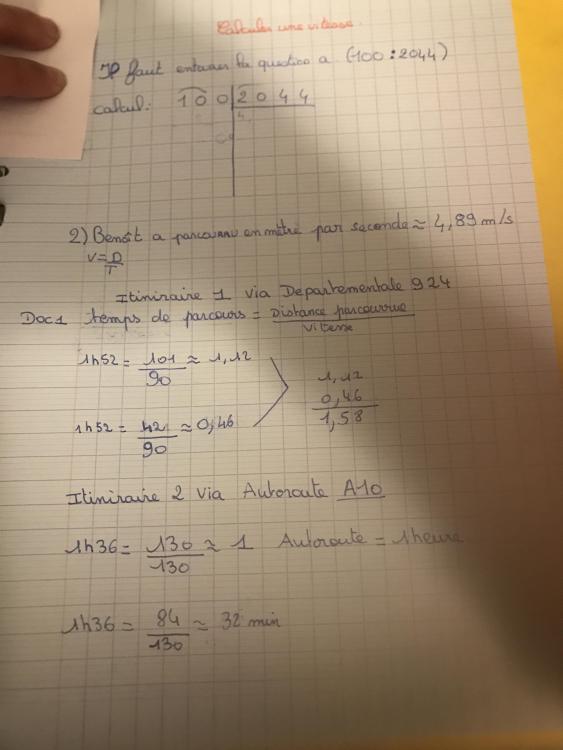 Calculer une vitesse.
Il faut entourer la question a (100:2044)
calcul: 100 2044
4
2) Benoît a parcourru en mètre par seconde ≈ 4,89 m/s
V = D/T
Itiniraire 1 via Departementale 924
Doc1 temps de parcours = Distance parcourrue / Vitesse
1h52 = 101/90 ≈ 1,12
1h52 = 42/90 ≈ 0,46
1,12
0,46
1,58
Itiniraire 2 via Autoroute A10
1h36 = 130/130 ≈ 1 Autoroute = 1heure
1h36 = 84/130 ≈ 32 min